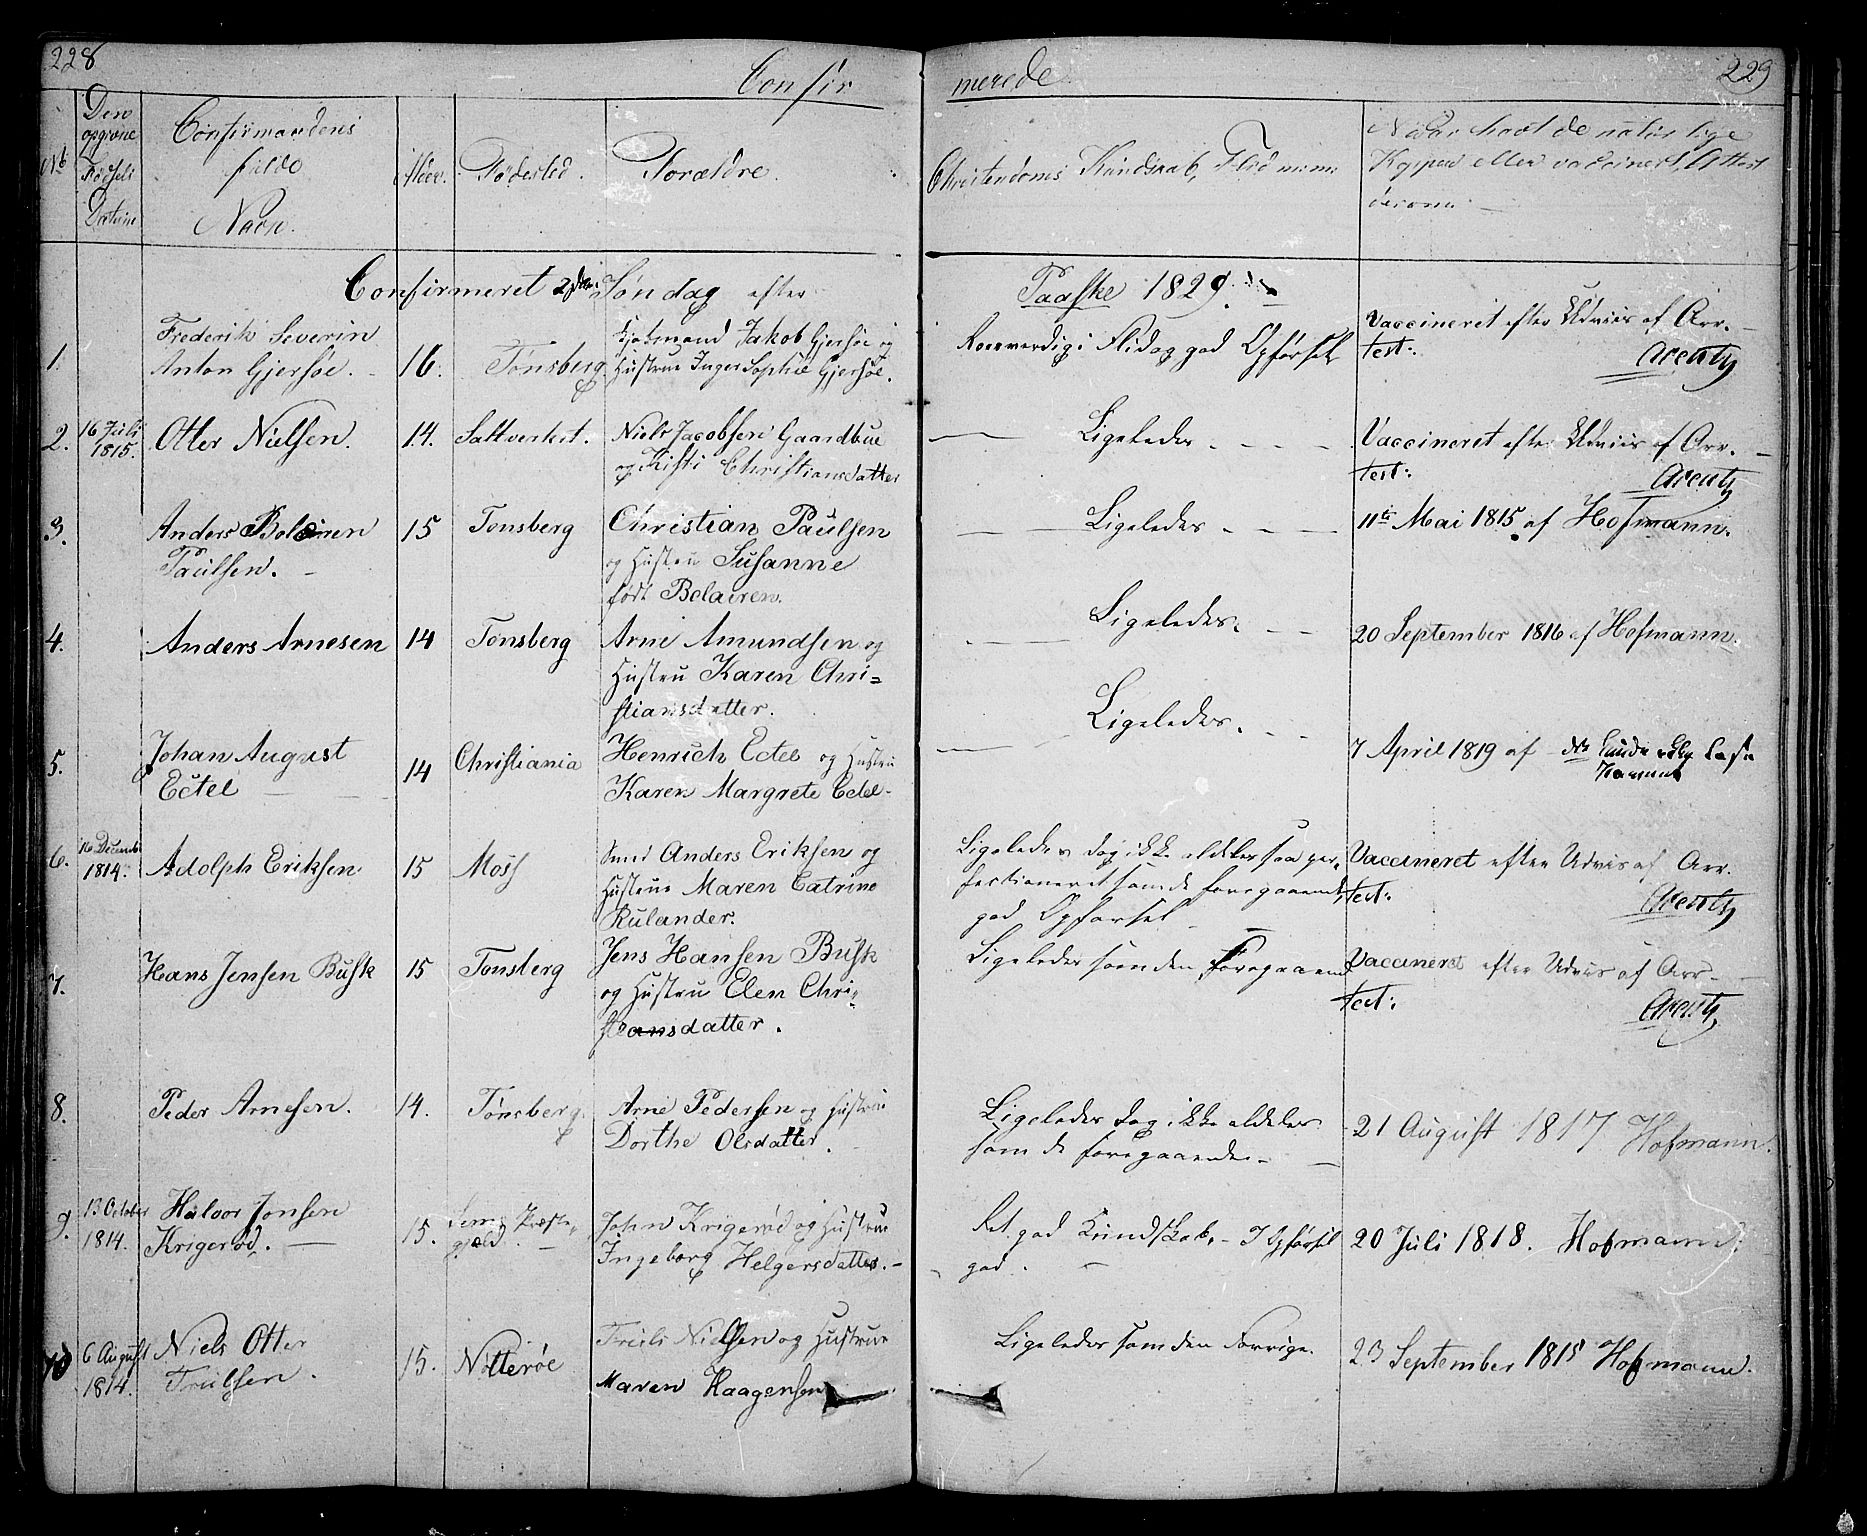 228
229
Confir
merede
No
Den
opgivne
Fødsels
Datum
Confirmandens
fulde
Navn.
Alder.
Fødested.
Forældre.
Christendoms Kundskab, Flid m:m:
Naar havt de naturlige
Kopper eller vaccineret, Attest
derom.
Confirmeret 2den Søndag efter
Paaske 1829.
1.
Frederik Severin
Anton Gjersøe.
16.
Tønsberg
Kjøbmand Jakob Gjersøe og
Hustrue Inger Sophie Gjersøe.
Roesverdig i Flid og god Opførsel
Vaccineret efter Udviis af Arr.
test:
Arentz
2.
16 Juli
1815.
Otter Nielsen.
14.
Saltverket.
Niels Jacobsen Gaardbue
og Kisti Christiansdatter
Ligeledes.
Vaccineret efter Udviis af Arr.
test:
Arentz
3.
Anders Bolairen
Paulsen.
15
Tønsberg
Christian Paulsen
og Hustru Susanne
født Bolairen.
Ligeledes
11te Mai 1815 af Hofmann.
4.
Anders Arnesen
14
Tønsberg
Arne Amundsen og
Hustru Karen Chri=
stiansdatter.
Ligeledes.
20 September 1816 af Hofmann.
5.
Johan August
Ectel
14
Christiania
Henrich Ectel og Hustru
Karen Margrete Ectel
Ligeledes.
7 April 1819 af
6.
16 Decemb
1814.
Adolph Eriksen
15
Moss
Smed Anders Eriksen og
Hustrue Maren Catrine
Rulander.
Ligeledes dog ikke aldeles saa per=
fectioneret som de foregaaende,
god Opførsel
Vaccineret efter Udvis af Arr.
test:
Arentz
7.
Hans Jensen Busk
15
Tønsberg
Jens Hansen Busk
og Hustru Elen Chri=
stiansdatter.
Ligeledes som den Foregaaend
Vaccineret efter Udvis af Arr
test:
Arentz,
8.
Peder Arnesen.
14.
Tønsberg.
Arne Pedersen og Hustrue
Dorthe Olsdatter.
Ligeledes dog ikke aldeles
som de foregaaende
21 August 1817 Hofmann.
9.
13 October
1814.
Halvor Jonsen
Krigerød.
15.
Sems Præste=
gjeld.
John Krigerød og Hustrue
Ingeborg Helgersdatter.
Ret god Kundskab. I Opførsel
god.
20 Juli 1818. Hofmann.
10
6 August
1814.
Niels Otter
Trulsen.
15.
Nøtterøe
Truls Nielsen og Hustrue
Maren Haagensen
Ligeledes som den Forrige.
23 September 1815 Hofmann.